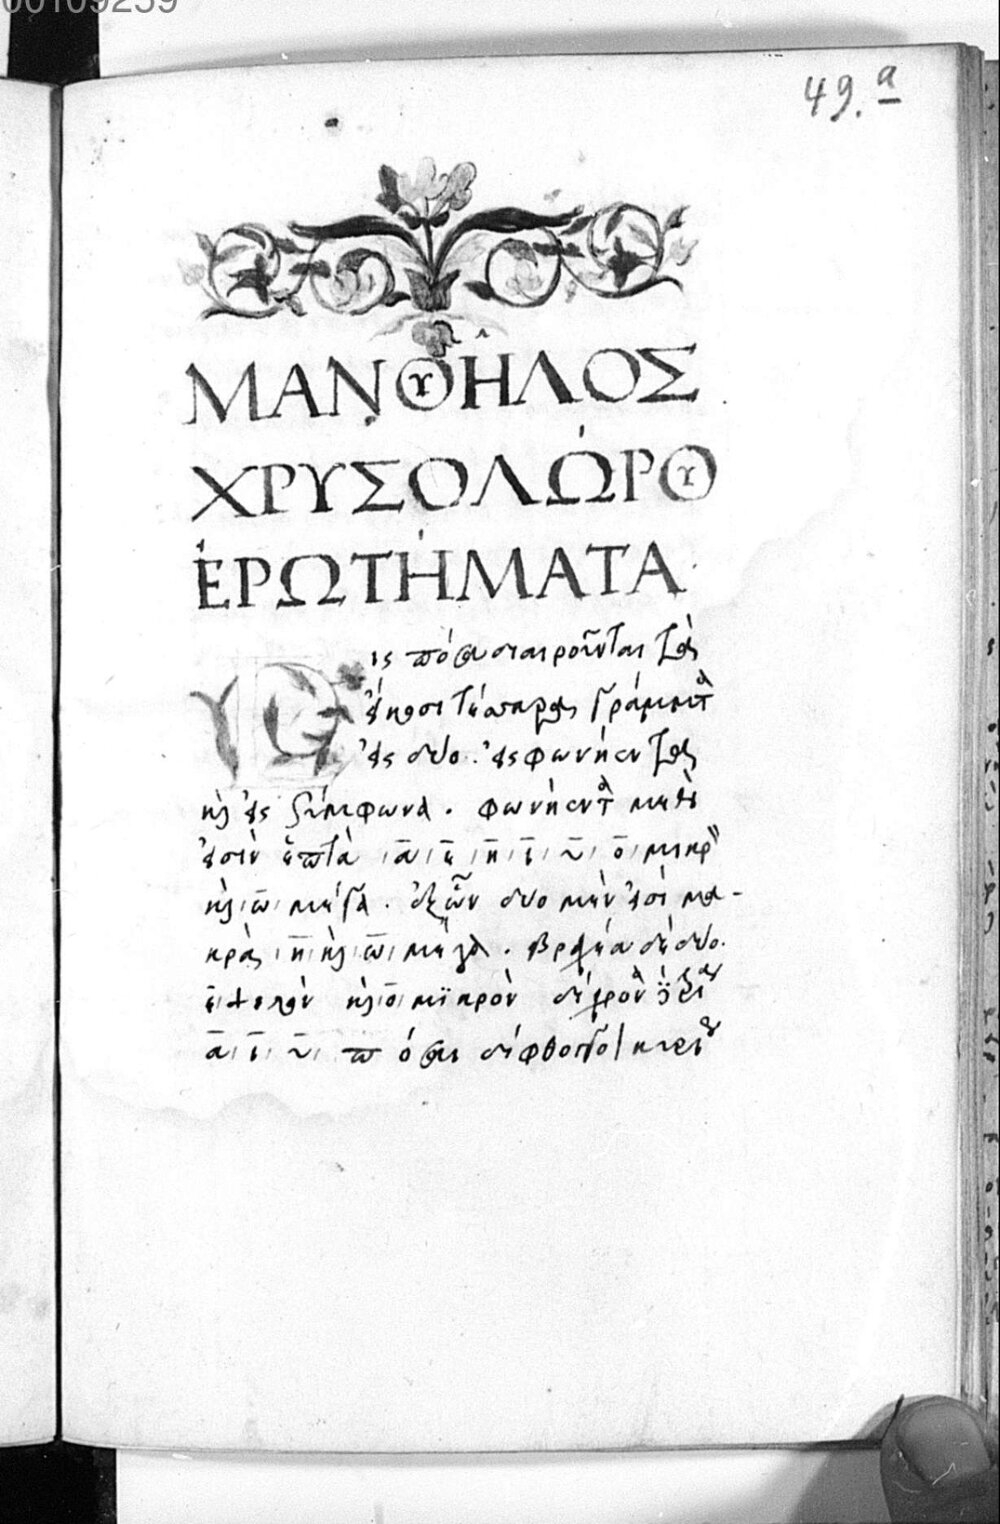 00109259
49.a
ΜΑΝΟΥΗ͂ΛΟΣ
ΧΡΥΣΟΛΩΡΟΥ
ἘΡΩΤΉΜΑΤΑ
Εἰς πόσα διαιροῦνται τὰ
εἴκοσι τέσσαρα γράμματα
εἰς δύο. εἰς φωνήεντα
καὶ εἰς σύμφωνα. φωνήεντα μὲν
εἰσὶν ἑπτὰ α ε η ι υ ο μικρὸν
καὶ ω μέγα. ἐξ ὧν δύο μὲν εἰσὶ μα-
κρὰ η καὶ ω μέγα. βραχέα δὲ δύο.
ε ψιλὸν καὶ ο μικρὸν δίχρονα
α ι υ πόσαι δίφθογγοι κύριαι